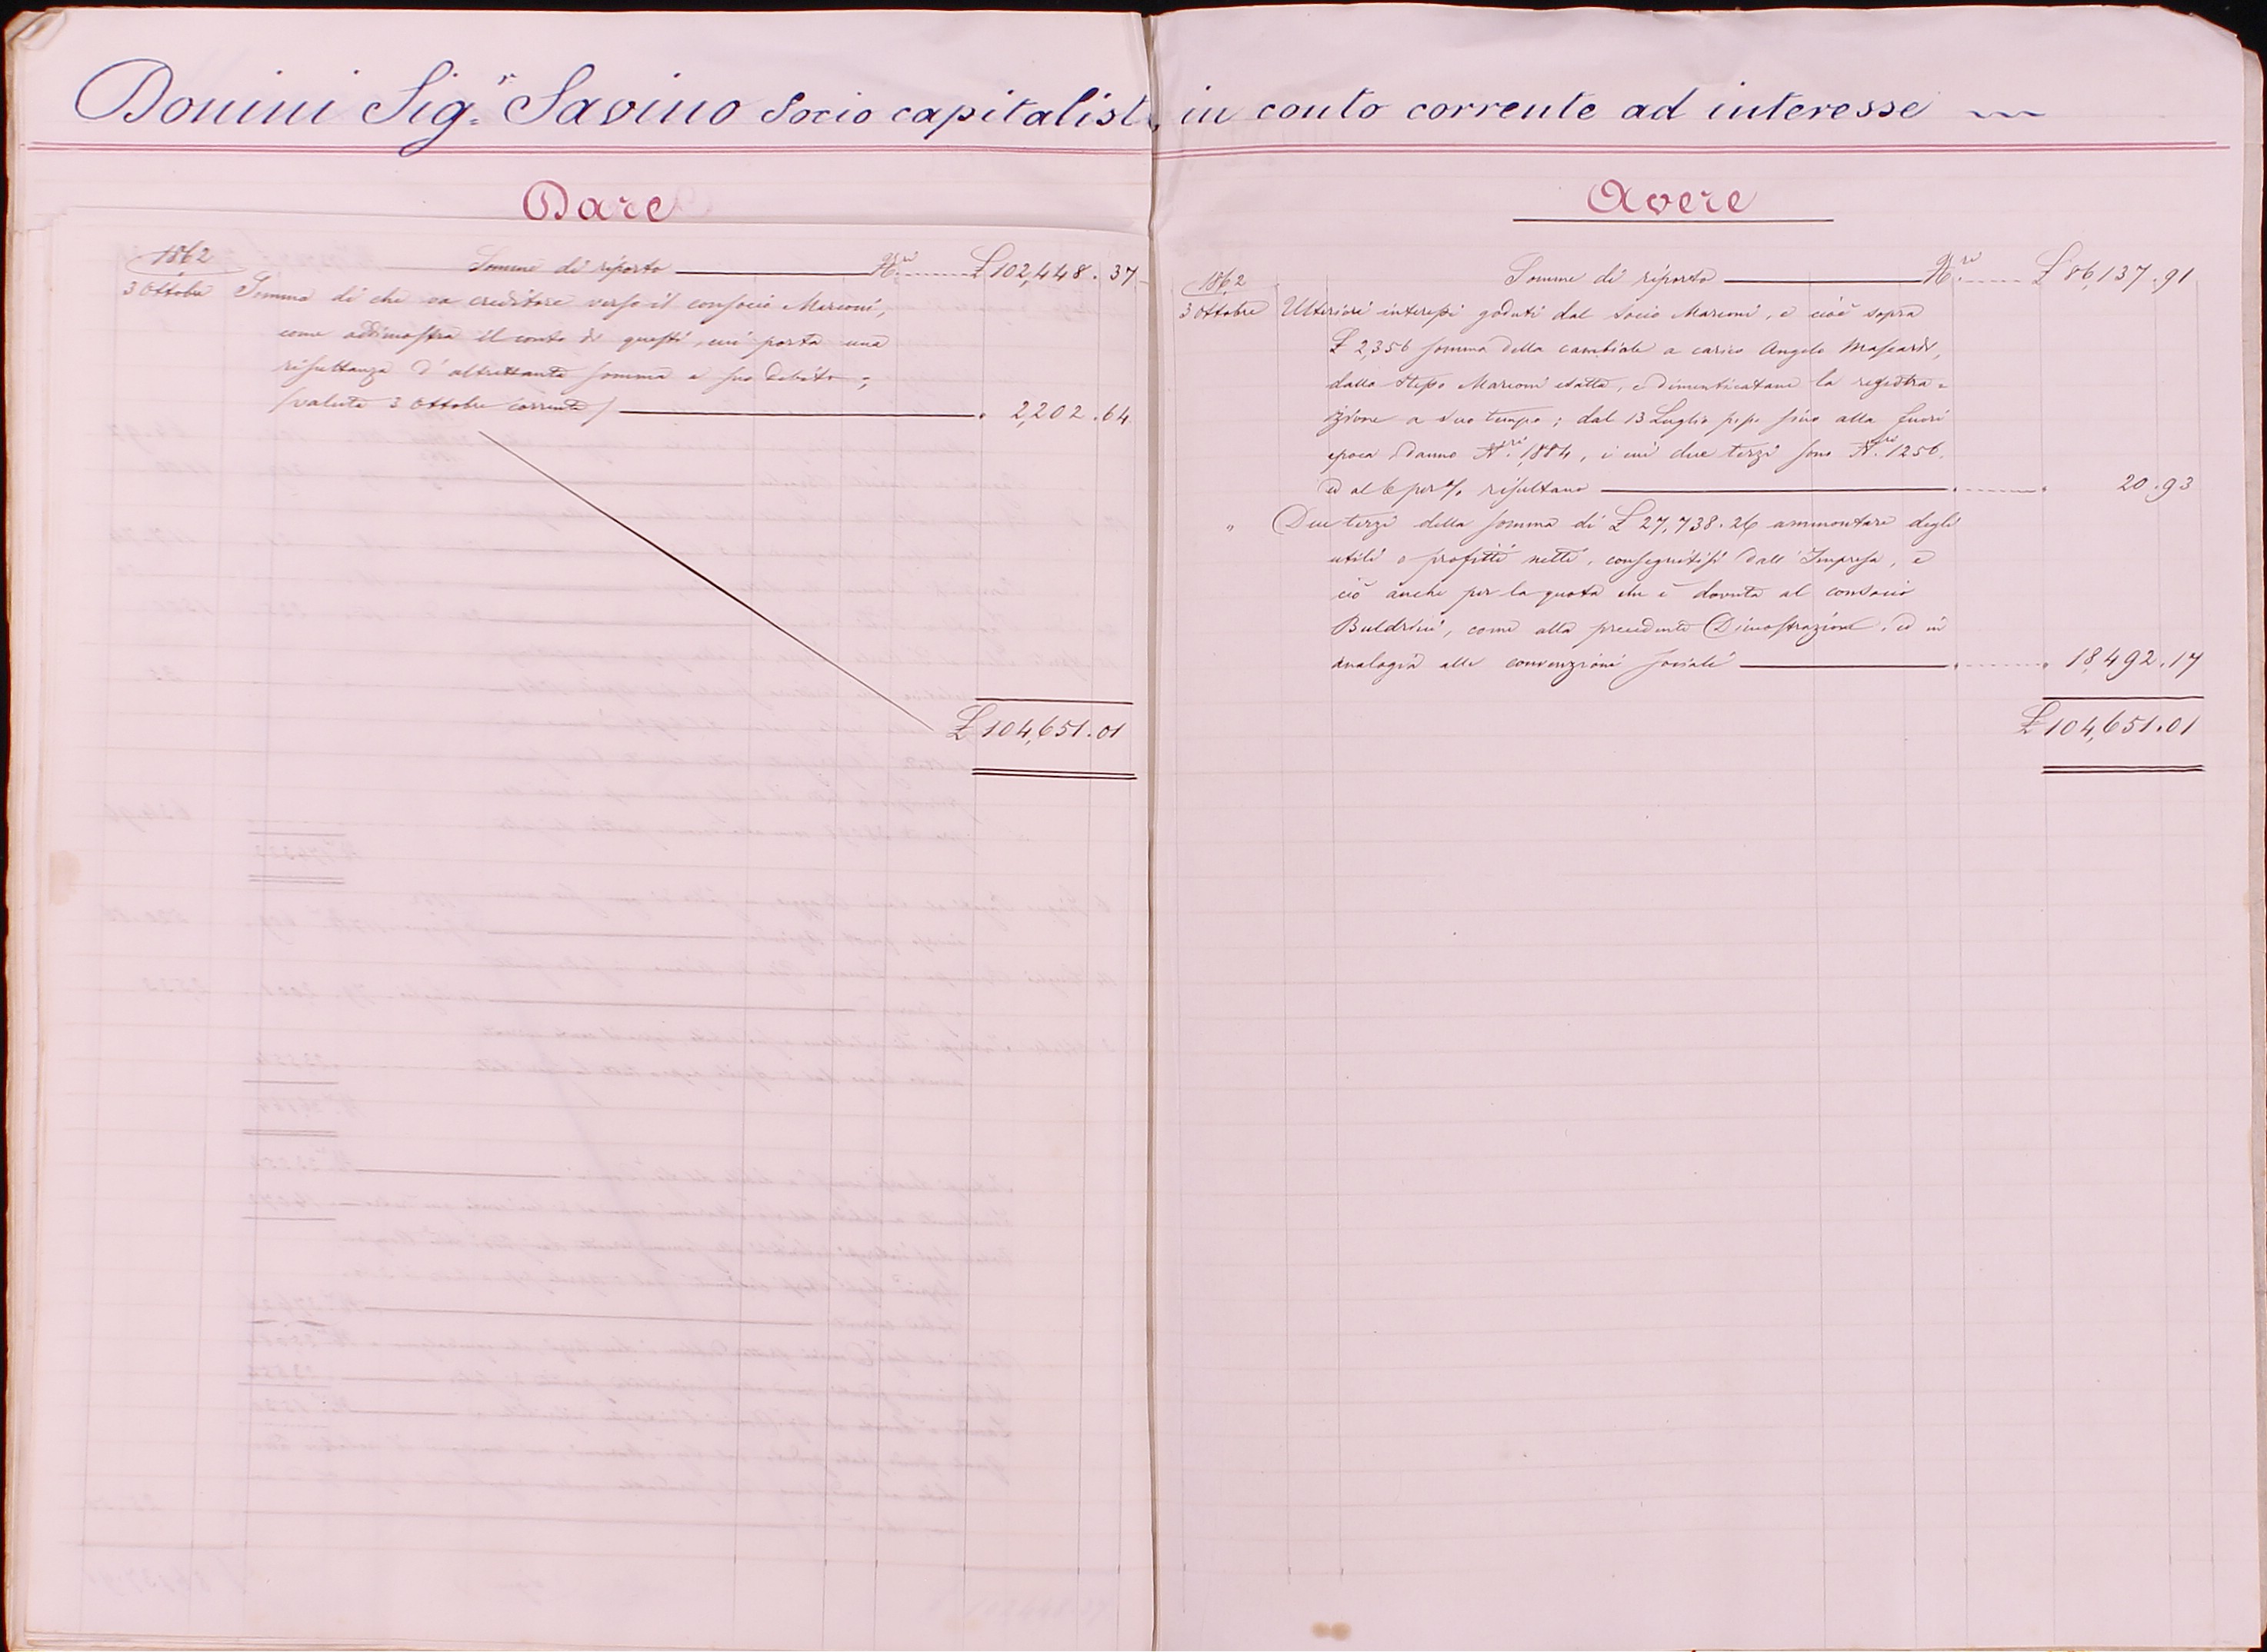 Donini Sig.r Savino Socio capitalista, in conto corrente ad interesse
Dare
1862
Somme di riporto N.ri £ 102,448.37
3 Ottobre Somma di che va creditore verso il consocio Marconi,
come addimostra il conto di questi, cui porta una
risultanza d'altrettanta somma a suo debito;
(valuta 3 Ottobre corrente) " 2,202.64
£ 104,651.01
Avere
1862
Somme di riporto N.ri £ 86,137.91
3 Ottobre Ulteriori interessi goduti dal Socio Marconi, e cioè sopra
£ 2,356 somma della cambiale a carico Angelo Mascardi,
dallo stesso Marconi esatta, e dimenticatane la registra=
zione a suo tempo; dal 13 Luglio p.p. sino alla fuori
epoca danno N.ri 1,884, i cui due terzi sono N.ri 1256.
ed al 6 per % risultano " 20.93
" Due terzi della somma di £ 27,738.26 ammontare degli
utili o profitti netti, conseguitisi dall'Impresa, e
ciò anche per la quota che è dovuta al consocio
Buldrini, come alla precedente Dimostrazione, ed in
analogia alle convenzioni sociali " 18,492.17
£ 104,651.01